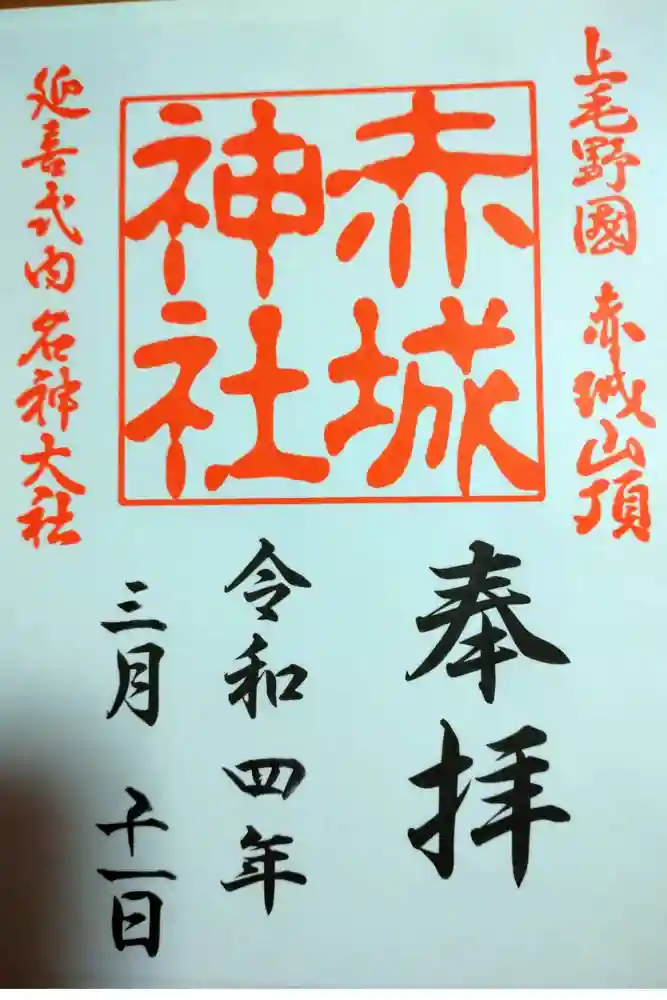 上毛野國 赤城山頂
赤城
神社
延喜式内 名神大社
奉拝
令和四年
三月 二十一日